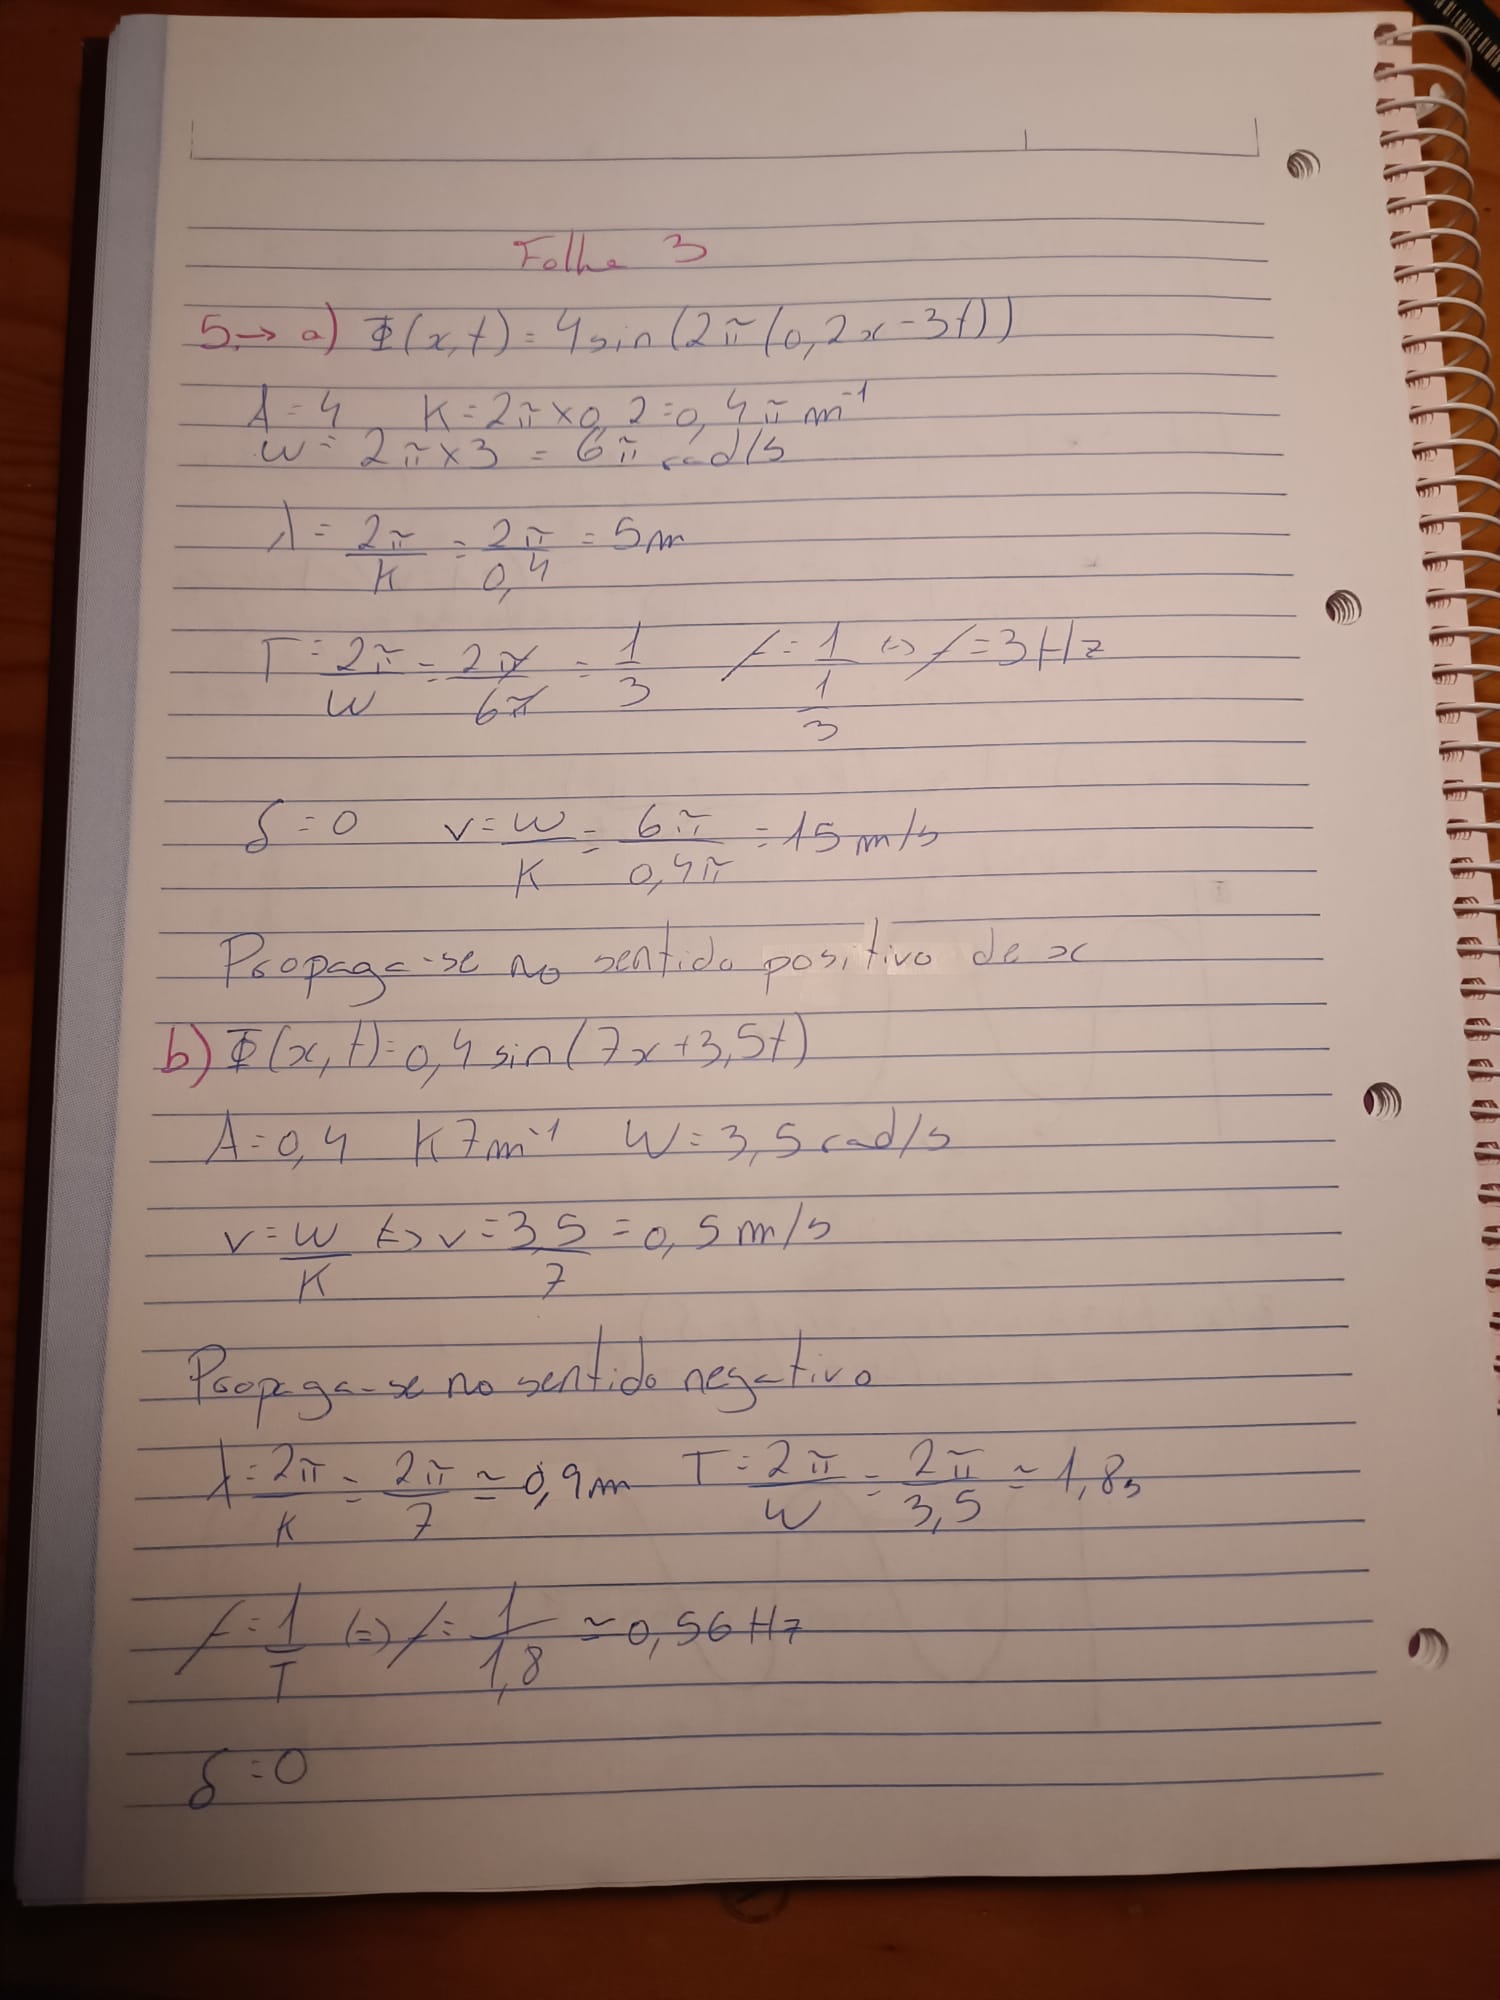 Folha 3
5. → a) Φ(x,t) = 4 sin(2π(0,2x-3t))
A = 4 K = 2π×0,2 = 0,4π m⁻¹
W = 2π×3 = 6π rad/s
λ = 2π/K = 2π/0,4 = 5m
T = 2π/W = 2π/6π = 1/3 f = 1/(1/3) (=) f = 3Hz
δ = 0 v = W/K = 6π/0,4π = 15 m/s
Propaga-se no sentido positivo de x
b) Φ(x,t) = 0,4 sin(7x+3,5t)
A = 0,4 K 7m⁻¹ W = 3,5 rad/s
v = W/K (=) v = 3,5/7 = 0,5 m/s
Propaga-se no sentido negativo
λ = 2π/K = 2π/7 ≃ 0,9m T = 2π/W = 2π/3,5 ≃ 1,8s
f = 1/T (=) f = 1/1,8 ≃ 0,56 Hz
δ = 0